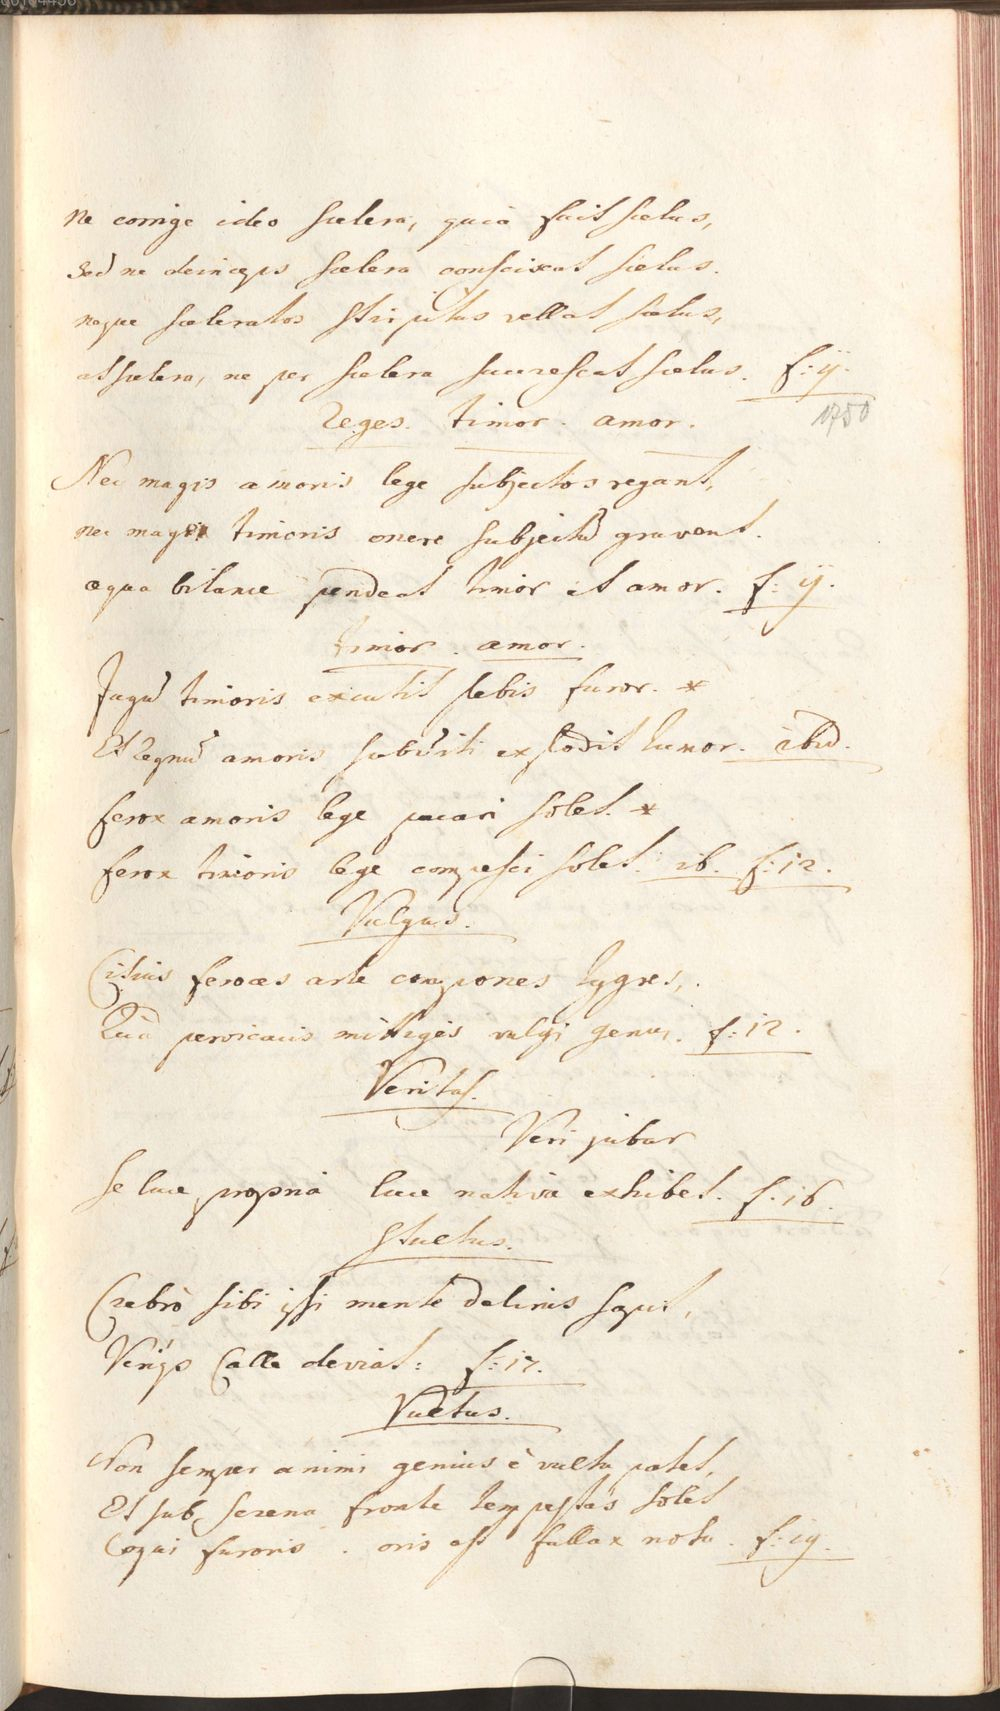 Ne corrige ideo scelera, quia facit scelus,
Sed ne deinceps scelera consciscat scelus.
neque sceleratos stirpitus vellat scelus,
at scelera, ne per scelera succrescat scelus. f: ij.
1750
Reges. timor. amor.
Nec magis amoris lege subjectos regant,
nec magis timoris onere subjectũ gravent.
æqua bilance pendeat timor et amor. f: ij.
timor. amor.
Jugũ timoris excutit plebis furor. *
Et regnũ amoris subditi explodit tumor. ibid.
ferox amoris lege pacari solet. *
ferox timoris lege compesci solet. ib. f: 12.
Vulgus.
Citius feroces arte compones tygres,
Quã pervicacis mitiges vulgi genus. f: 12.
Veritas.
Veri jubar
Se luce propriâ luce nativâ exhibet. f. 16.
Stultus.
Crebrò sibi ipsi mente delirus sapit,
Veriq́s calle deviat: f: 17.
Vultus.
Non semper animi genius è vultu patet,
Et sub serena fronte tempestas solet
Coqui furoris. oris est fallax nota. f: 19.